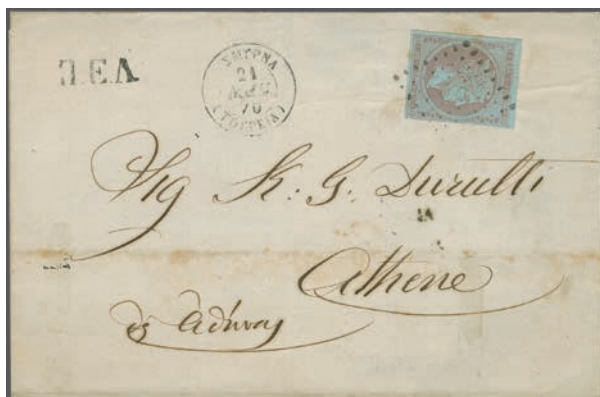 Π.Ε.Λ
ΣΜΥΡΝΑ
21
70
(ΤΟΥΡΚΙΑ)
Sig K: G. Durutti
Athene
εἰς Ἀθήνας